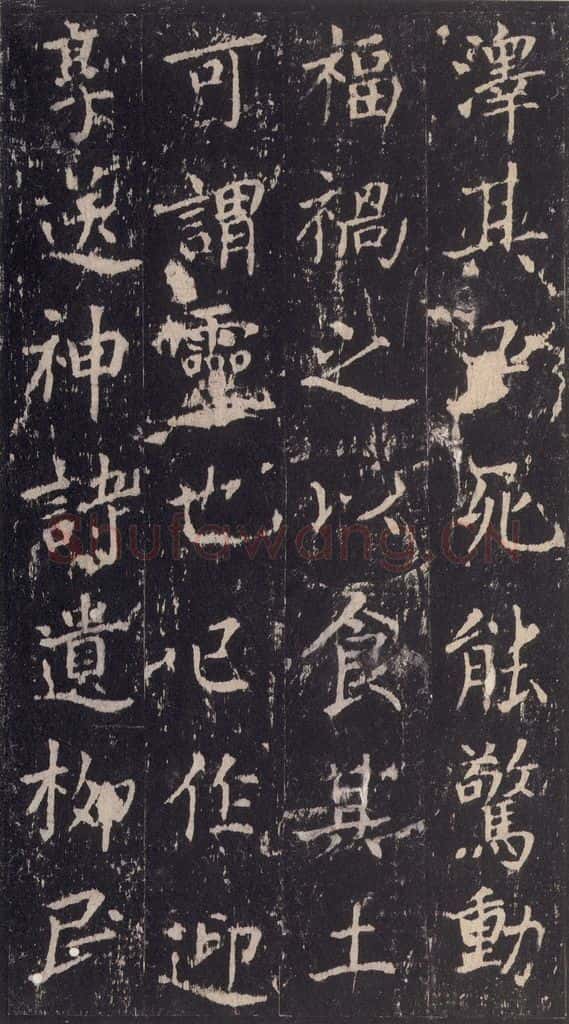 澤其民死能驚動
福禍之以食其土
可謂靈也已作迎
享送神詩遺柳民
Shufawang.CN